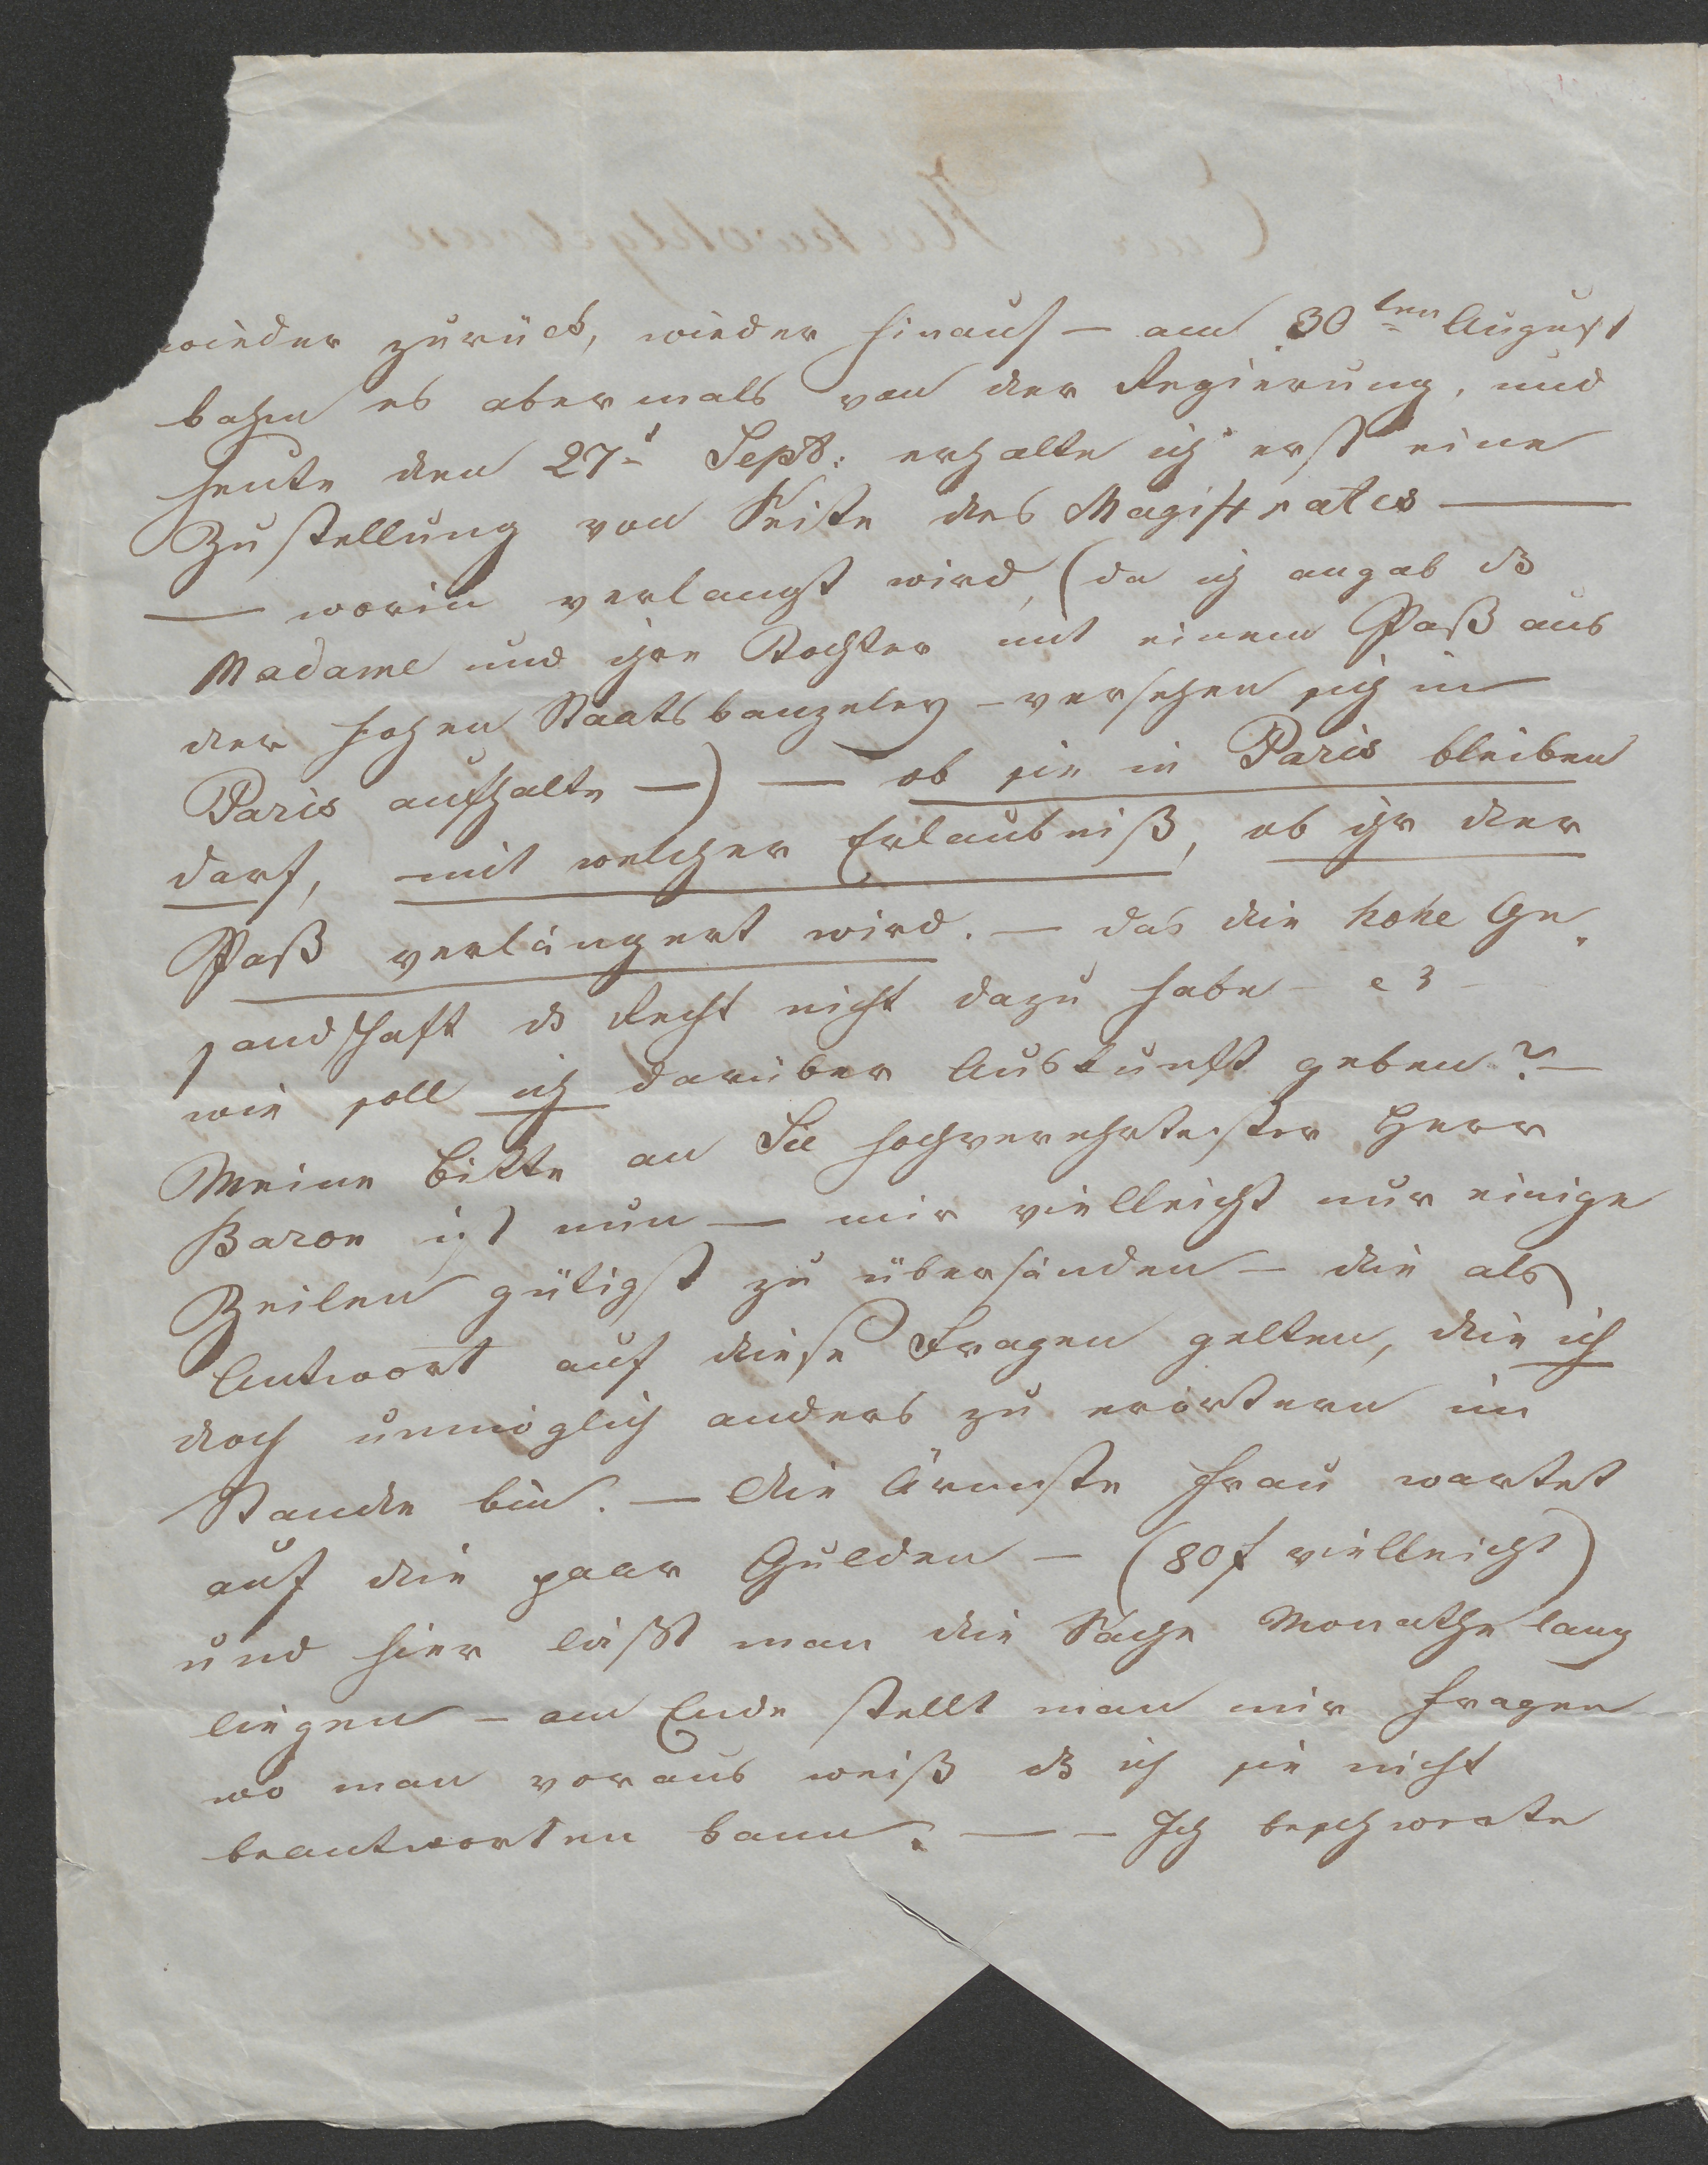 wieder zurück, wieder hinauf — am 30ten August
kahm es abermals von der Regierung, und
heute den 27t Sept: erhalte ich erst eine
Zustellung von Seite des Magistrates —
— worin verlangt wird, (da ich angab dß
Madame und ihre Tochter mit einem Paß aus
der hohen Staatskanzeley – versehen sich in
Paris aufhalte —) — ob sie in Paris bleiben
darf, mit welcher Erlaubniß, ob ihr der
Paß verlängert wird. — das die hohe Ge-
sandschaft ds Recht nicht dazu habe –
wie soll ich darüber Auskunft geben? —
Meine Bitte an Sie hochverehrtester Herr
Baron ist nun — mir vielleicht nur einige
Zeilen gütigst zu übersänden — die als
Antwort auf diese Fragen gelten, die ich
doch unmöglich anders zu erörtern im
Stande bin. — Die Ärmste Frau wartet
auf die paar Gulden — (80 f vielleicht)
und hier läßt man die Sache Monathe lang
liegen – am Ende stellt man mir Fragen
wo man voraus weiß dß ich sie nicht
beantworten kann. — – Ich beschwerte